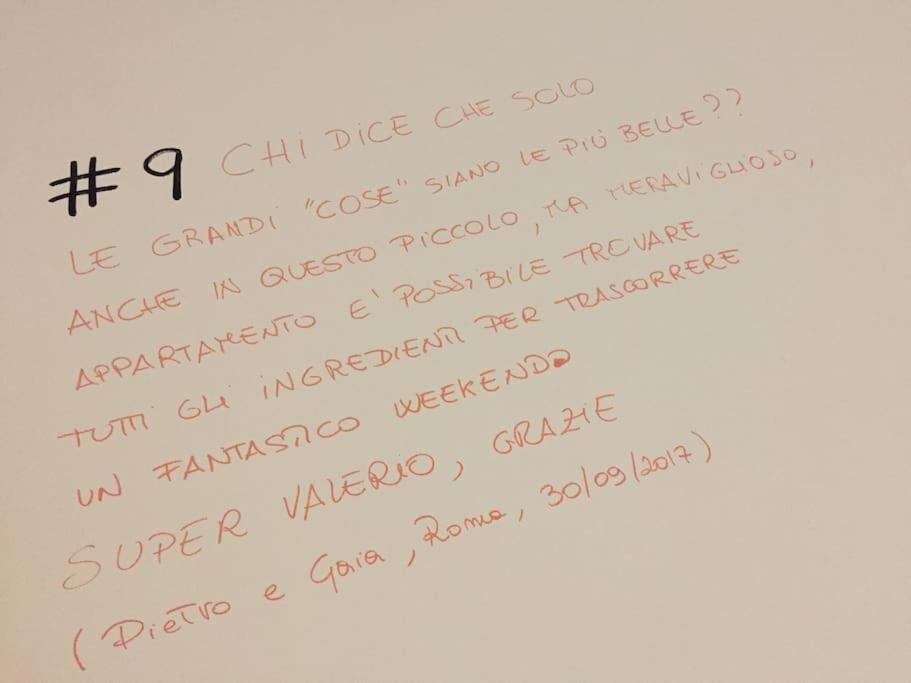 #9 CHI DICE CHE SOLO
LE GRANDI "COSE" SIANO LE PIÙ BELLE??
ANCHE IN QUESTO PICCOLO, MA MERAVIGLIOSO,
APPARTAMENTO E' POSSIBILE TROVARE
TUTTI GLI INGREDIENTI PER TRASCORRERE
UN FANTASTICO WEEKEND
SUPER VALERIO, GRAZIE
(Pietro e Gaia, Roma, 30/09/2017)